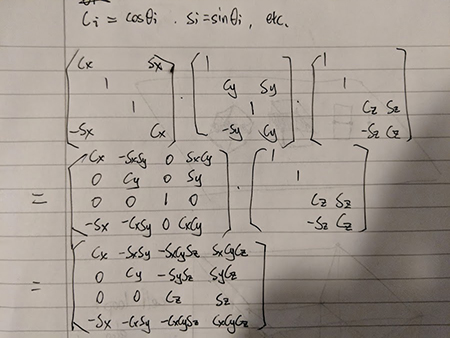 Ci = cosθi . Si = sinθi, etc.
[Cx Sx; 1; 1; -Sx Cx] · [1; Cy Sy; 1; -Sy Cy] · [1; 1; Cz Sz; -Sz Cz]
= [Cx -SxSy 0 SxCy; 0 Cy 0 Sy; 0 0 1 0; -Sx -CxSy 0 CxCy] · [1; 1; Cz Sz; -Sz Cz]
= [Cx -SxSy -SxCySz SxCyCz; 0 Cy -SySz SyCz; 0 0 Cz Sz; -Sx -CxSy -CxCySz CxCyCz]